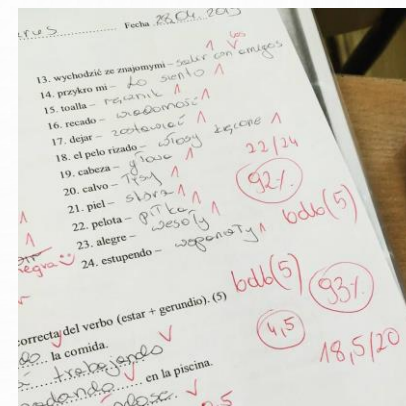 Fecha 28.04.2015
los
13. wychodzić ze znajomymi – salir con amigos
14. przykro mi – Lo siento
15. toalla – ręcznik
16. recado – wiadomość
17. dejar – zostawiać
18. el pelo rizado – włosy kręcone
19. cabeza – głowa
20. calvo – łysy
21. piel – skóra
22. pelota – piłka
23. alegre – wesoły
24. estupendo – wspaniały
22/24
92%
bdb(5)
negra
bdb(5)
93%
4,5
18,5/20
correcta del verbo (estar + gerundio). (5)
la comida.
trabajando
en la piscina.